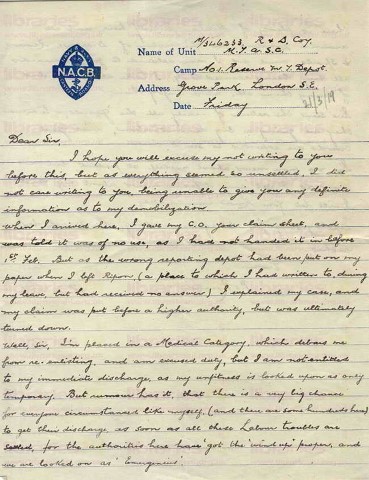 N.A.C.B.
M/346233. R & D. Coy.
Name of Unit M.T. A.S.C.
Camp No1. Reserve M.T. Depot.
Address Grove Park, London S.E.
Date Friday 21/3/19
Dear Sir,
I hope you will excuse my not writing to you
before this, but as everything seemed so unsettled, I did
not care writing to you, being unable to give you any definite
information as to my demobilization
When I arrived here, I gave my C.O. your claim sheet, and
was told it was of no use, as I had not handed it in before
1st Feb. But as the wrong reporting depot had been put on my
paper when I left Ripon, (a place to which I had written to during
my leave, but had received no answer) I explained my case, and
my claim was put before a higher authority, but was ultimately
turned down.
Well, Sir, I'm placed in a Medical Category, which debars me
from re-enlisting, and am excused duty, but I am not entitled
to my immediate discharge, as my unfitness is looked upon as only
temporary. But rumour has it, that there is a very big chance
for everyone circumstanced like myself, (and there are some hundreds here)
to get their discharge as soon as all these Labour troubles are
settled, for the authorities here have 'got the wind up' proper, and
we are looked on as 'Emergencies'.